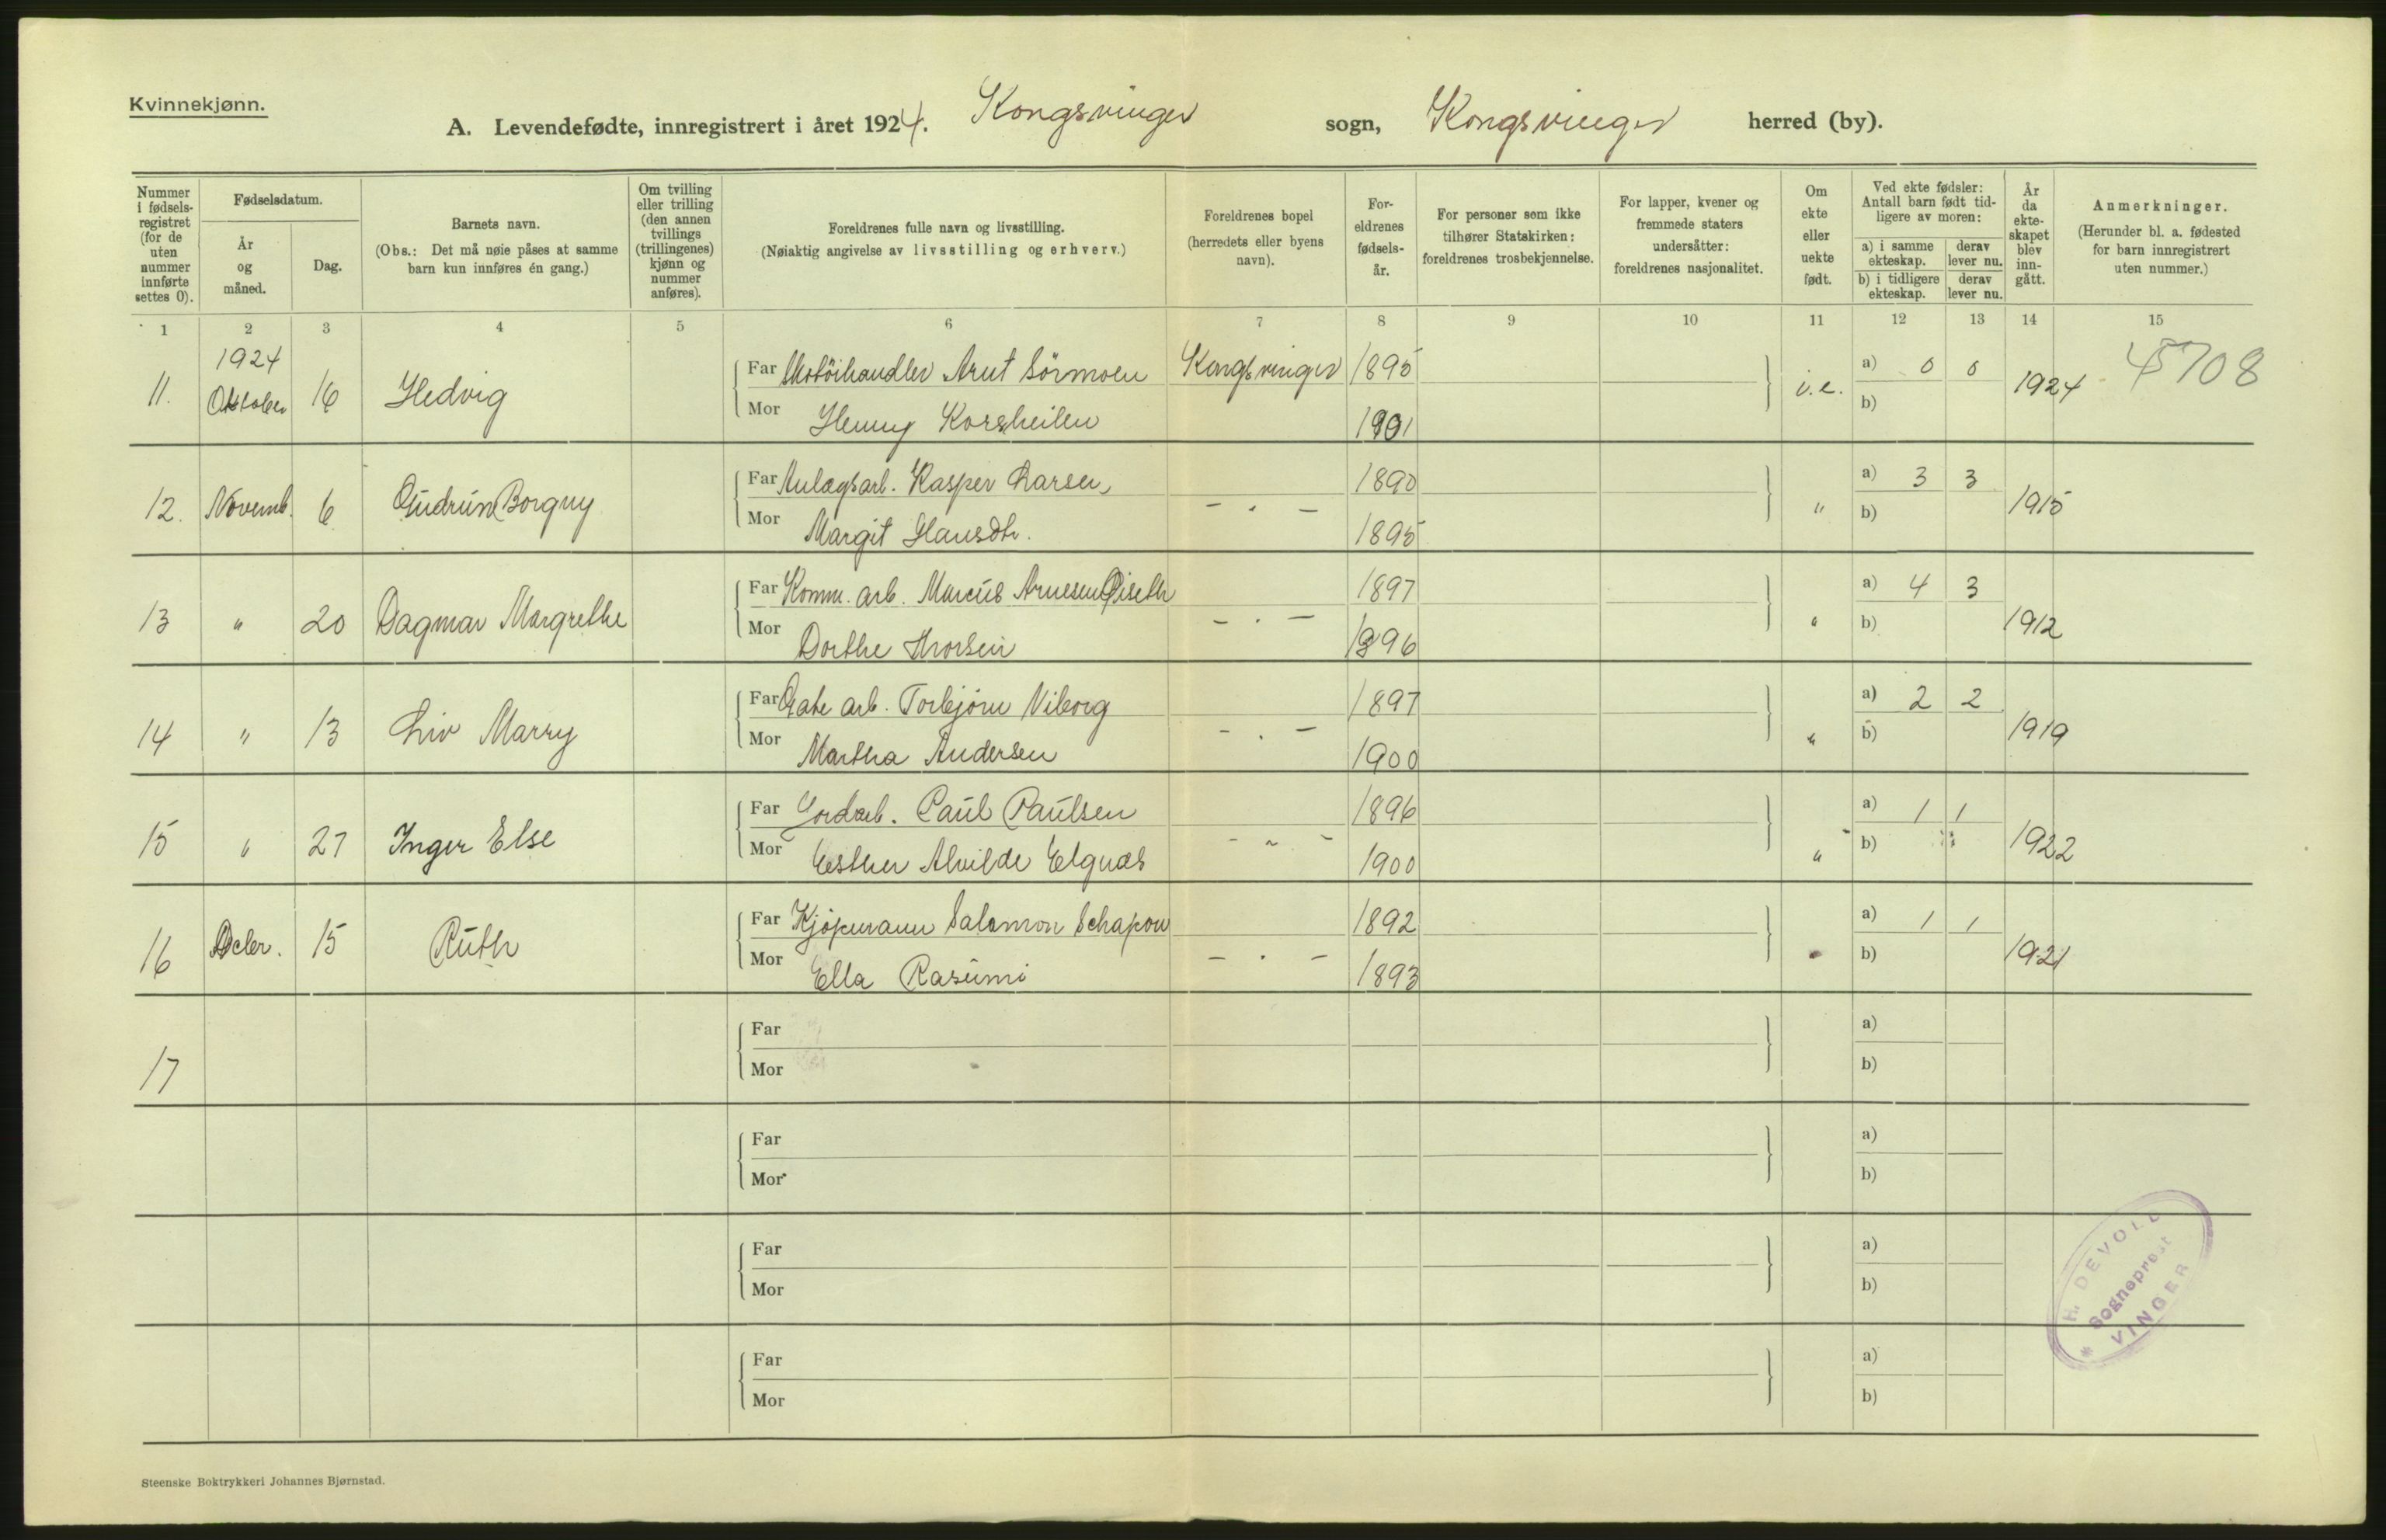 Kvinnekjønn.
A. Levendefødte, innregistrert i året 1924. Kongsvinger sogn, Kongsvinger herred (by).
Nummer i fødsels-registret (for de uten nummer innførte settes 0).
Fødselsdatum.
År og måned.
Dag.
Barnets navn.
(Obs.: Det må nøie påses at samme barn kun innføres én gang.)
Om tvilling eller trilling (den annen tvillings (trillingenes) kjønn og nummer anføres).
Foreldrenes fulle navn og livsstilling.
(Nøiaktig angivelse av livsstilling og erhverv.)
Foreldrenes bopel (herredets eller byens navn).
For-eldrenes fødsels-år.
For personer som ikke tilhører Statskirken: foreldrenes trosbekjennelse.
For lapper, kvener og fremmede staters undersåtter: foreldrenes nasjonalitet.
Om ekte eller uekte født.
Ved ekte fødsler: Antall barn født tid-ligere av moren:
a) i samme ekteskap.
derav lever nu.
b) i tidligere ekteskap.
derav lever nu.
År da ekte-skapet blev inn-gått.
Anmerkninger.
(Herunder bl. a. fødested for barn innregistrert uten nummer.)
1 2 3 4 5 6 7 8 9 10 11 12 13 14 15
1924
11. Oktober 16 Hedvig Far Skotöihandler Arnt Sörmoen Kongsvinger 1895 i.e. a) 0 0 1924 45708
Mor Henny Korsheilen 1901 b)
12. Novemb. 6 Gudrun Borguy Far Anlægsarb. Kasper Larsen - " - 1890 " a) 3 3 1915
Mor Margit Hansdtr. 1895 b)
13 " 20 Dagmar Margrethe Far Komm. arb. Marcus Arnesen Øiseth - " - 1897 " a) 4 3 1912
Mor Dorthe Thorsen 1896 b)
14 " 13 Liv Marry Far Gate arb. Torbjörn Viborg - " - 1897 " a) 2 2 1919
Mor Martha Andersen 1900 b)
15 " 27 Inger Else Far Jordarb. Paul Paulsen - " - 1896 " a) 1 1 1922
Mor Esther Alvilde Elgnæs 1900 b)
16 Dcbr. 15 Ruth Far Kjöpmann Salomon Schapow - " - 1892 " a) 1 1 1921
Mor Ella Rasumi 1893 b)
17 Far a)
Mor b)
Far a)
Mor b)
Far a)
Mor b)
Far a)
Mor b)
H. DEVOLD
Sogneprest
* VINGER
Steenske Boktrykkeri Johannes Bjørnstad.